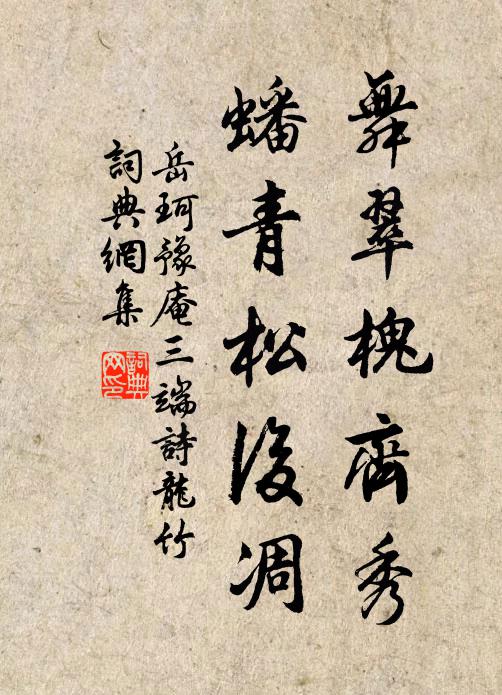 舞翠槐齊秀
蟠青松後凋
岳珂豫庵三端詩龍竹
詞典網集
詞典网印